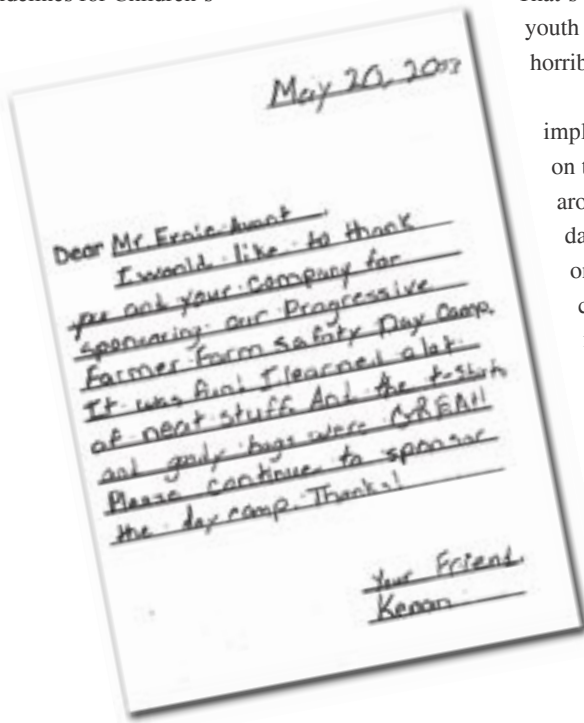 idelines for Children's
May 20, 2003
Dear Mr. Ernie Avant
I would like to thank
you and your company for
sponsoring our Progressive
Farmer Farm Safety Day Camp.
It was fun! I learned alot
of neat stuff. And the t-shirts
and goody bags were GREAT!
Please continue to sponsor
the day camp. Thanks!
Your Friend,
Kenan
That's
youth
horrib
impl
on t
aro
da
or
c